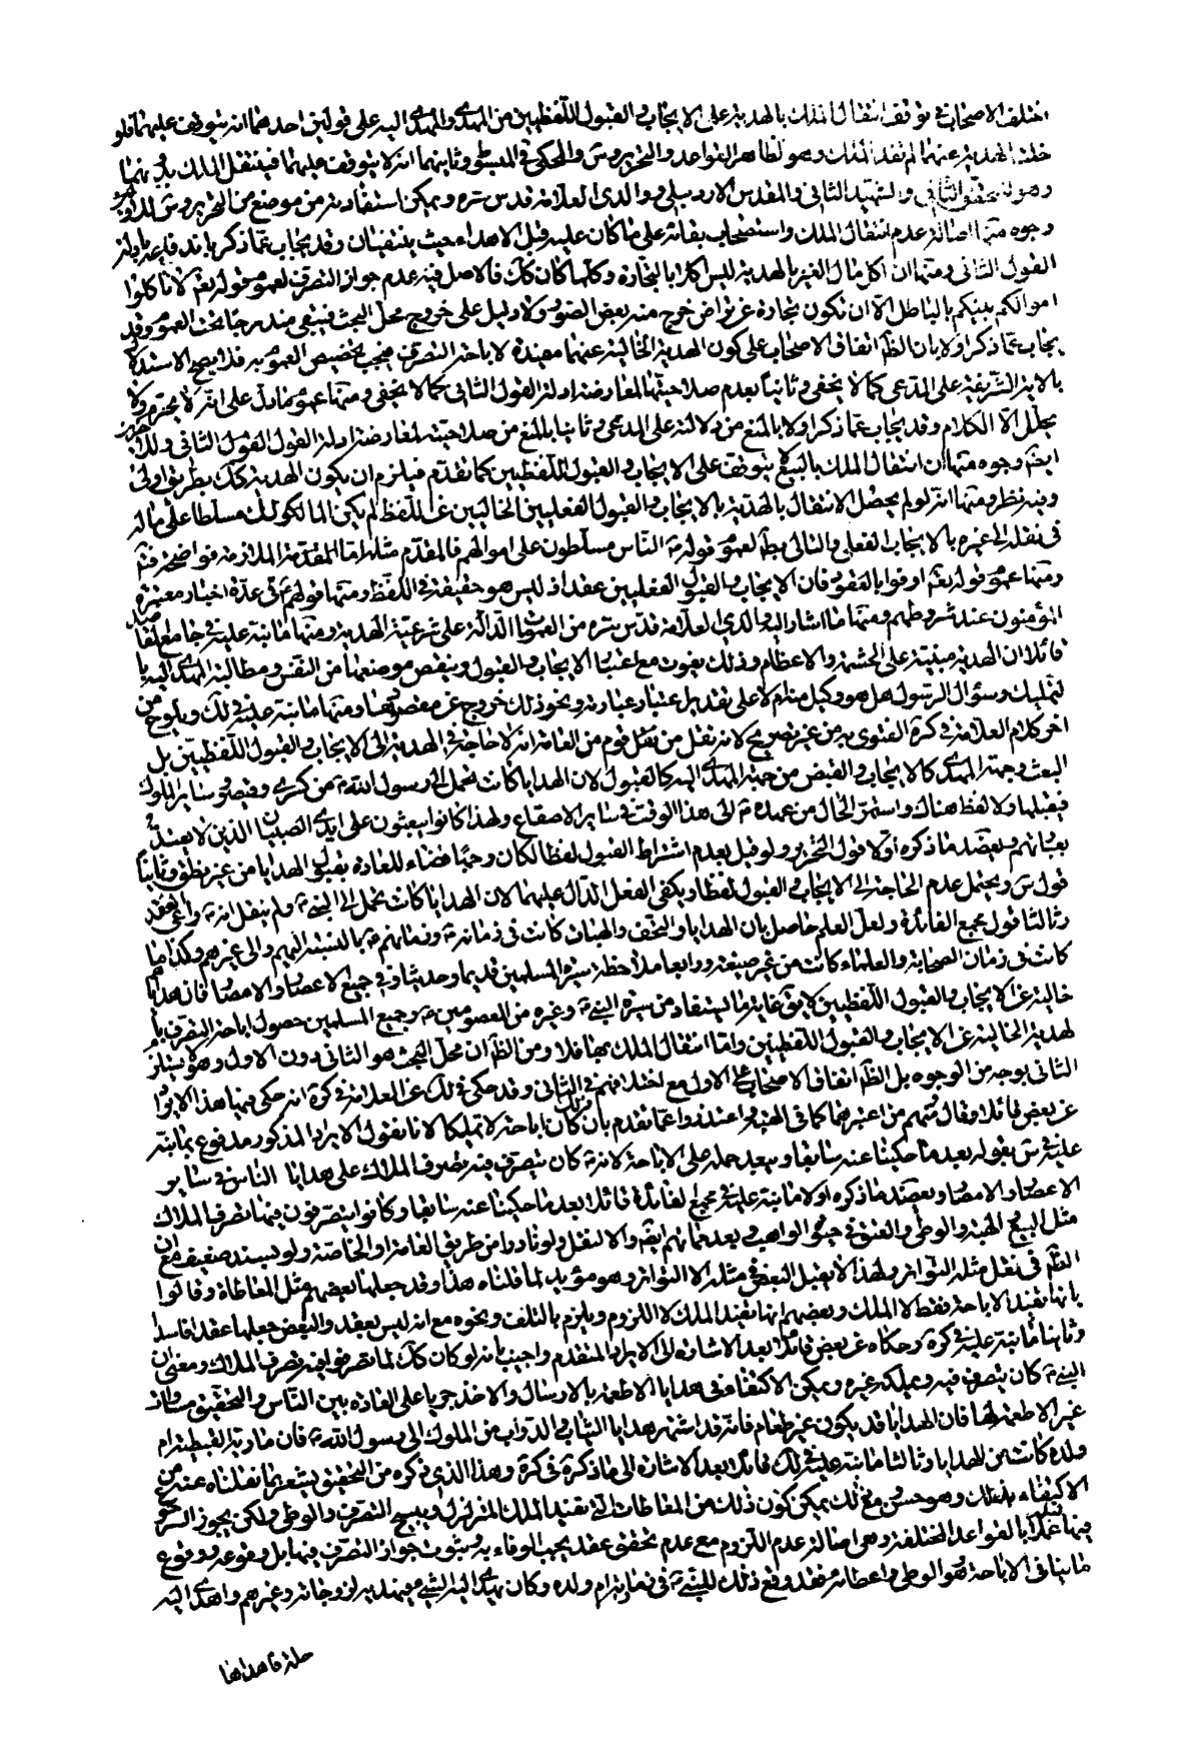 اختلف الاصحاب في توقف انتقال الملك بالهدية على الايجاب والقبول اللفظيين من المهدي والمهدى اليه على قولين احدهما انه يتوقف عليهما فلو
خلت الهدية عنهما لم تفد الملك وهو لظاهر القواعد والتحرير وس والمحكى في المبسوط وثانيهما انه لا يتوقف عليهما فينتقل الملك بدونهما
وهو للمحقق الثاني والشهيد الثاني والمقدس الاردبيلي ووالدي العلامة قدس سره ويمكن استفادته من موضع من التحرير وس للاولين
وجوه منها اصالة عدم انتقال الملك واستصحاب بقائه على ما كان عليه قبل الاهداء حيث ينتفيان وقد يجاب عما ذكر باندفاعه بادلة
القول الثاني ومنها ان اكل مال الغير بالهدية ليس اكلا بالتجارة وكلما كان كك فالاصل فيه عدم جواز التصرف لعموم قوله تعم لا تاكلوا
اموالكم بينكم بالباطل الا ان تكون تجارة عن تراض خرج منه بعض الصور ولا دليل على خروج محل البحث فيبقى مندرجا تحت العموم وقد
يجاب عما ذكر اولا بان الظ اتفاق الاصحاب على كون الهدية الخالية عنهما مفيدة لاباحة التصرف فيجب تخصيص العموم به فلا يصح الاستدلال
بالاية الشريفة على المدعى كما لا يخفى وثانيا بعدم صلاحيتها لمعارضة ادلة القول الثاني كما لا يخفى ومنها عموم ما دل على انه لا يحرم ولا
يحلل الا الكلام وقد يجاب عما ذكر اولا بالمنع من دلالته على المدعى وثانيا بالمنع من صلاحيته لمعارضة ادلة القول الثاني وللاخرين
ايضا وجوه منها ان انتقال الملك بالبيع لا يتوقف على الايجاب والقبول اللفظيين كما تقدم فيلزم ان يكون الهدية كك بطريق اولى
وفيه نظر ومنها انه لو لم يحصل الانتقال بالهدية بالايجاب والقبول الفعليين الخاليين عن اللفظ لم يكن المالك مسلطا على ماله
في نقله الى غيره بالايجاب الفعلي والتالى بط لعموم قوله ص الناس مسلطون على اموالهم فالمقدم مثله اما المقدمة الملازمة فواضحة فتم
ومنها عموم قوله تعم اوفوا بالعقود فان الايجاب والقبول الفعليين عقد اذ ليس هو حقيقة في اللفظ ومنها قولهم ع في عدة اخبار معتبرة
المؤمنون عند شروطهم ومنها ما اشار اليه والدي العلامة قدس سره من العمومات الدالة على شرعية الهدية ومنها ما نبه عليه في جامع المقاصد
قائلا ان الهدية مبنية على الحشمة والاعظام وذلك يفوت مع اعتبار الايجاب والقبول وينقص موضعها من النفس ومطالبة المهدى اليه با
لتمليك وسؤال الرسول هل هو وكيل منه ام لا على تقدير اعتبار عبارته ونحو ذلك خروج عن مقصودها ومنها ما نبه عليه في لك ويلوح من
اخر كلام العلامة في كرة الفتوى به من غير تصريح لانه نقل من نقل قوم من العامة انه لا حاجة في الهدية الى الايجاب والقبول اللفظيين بل
البعث وجهة المهدي كالايجاب والقبض من جهة المهدى اليه كالقبول لان الهدايا كانت تحمل الى رسول الله ص من كسرى وقيصر وساير الملوك
فيقبلها ولا لفظ هناك واستمر الحال من عهده ص الى هذا الوقت في ساير الاصقاع ولهذا كانوا يبعثون على ايدي الصبيان الذين لا يعتد
بعباراتهم ويعضد ما ذكره اولا قول التحرير ولو قيل بعدم اشتراط القبول لفظا لكان وجها قضاء للعادة بقبول الهدايا من غير نطق وثانيا
قول س ويحتمل عدم الحاجة الى الايجاب والقبول لفظا ويكفي الفعل الدال عليهما لان الهدايا كانت تحمل الى النبي ص ولم ينقل انه ص راعى العقد
وثالثا قول مجمع الفائدة ولعل العلم حاصل بان الهدايا والتحف والهبات كانت في زمانه ص وزمانهم ع بالنسبة اليهم والى غيرهم وكذا ما
كانت في زمان الصحابة والعلماء كانت من غير صيغة ورابعا ملاحظة سيرة المسلمين قديما وحديثا في جميع الاعصار والامصار فان هداياهم
خالية عن الايجاب والقبول اللفظيين لا يق غاية ما يستفاد من سيرة النبي ص وغيره من المعصومين ع وجميع المسلمين حصول اباحة التصرف با
لهدية الخالية عن الايجاب والقبول اللفظيين واما انتقال الملك بها فلا ومن الظ ان محل البحث هو الثاني دون الاول وهو لا يستلزم
الثاني بوجه من الوجوه بل الظ اتفاق الاصحاب على الاول مع اختلافهم في الثاني وقد حكى في لك عن العلامة في كرة انه حكى فيها هذا الايراد
عن بعض قائلا وقال ومنهم من اعتبرهما كما في الهبة واعتذروا عما تقدم بان ذلك كان اباحة لا تمليكا لانا نقول الايراد المذكور مدفوع بما نبه
عليه في س بقوله بعد ما حكينا عنه سابقا ويبعد حمله على الاباحة لانه ص كان يتصرف فيه تصرف الملاك على هدايا الناس في ساير
الاعصار والامصار ويعضد ما ذكره اولا ما نبه عليه في مجمع الفائدة قائلا بعد ما حكينا عنه سابقا وكانوا يتصرفون فيها تصرف الملاك
مثل البيع والهبة والوطي والعتق في حيوة الواهب وبعد مماتهم ايضا والا لنقل ولو نادرا من طريق العامة او الخاصة ولو بسند ضعيف مع ان
الظ في نقل مثله التواتر ولهذا لا يقبل البعض في مثله الا التواتر وهو مؤيد لما قلناه هذا وقد جعلها بعضهم مثل المعاطاة وقالوا
بانها تفيد الاباحة فقط لا الملك وبعضهم انها تفيد الملك لا اللزوم ويلزم بالتلف ونحوه مع انه ليس بعقد والبعض جعلها عقدا فاسدا
وثانيا ما نبه عليه في كرة وحكاه عن بعض قائلا بعد الاشارة الى الايراد المتقدم واجيب بانه لو كان كك لما تصرفوا فيه تصرف الملاك ومعلوم ان
النبي ص كان يتصرف فيه ويملكه غيره ويمكن الاكتفاء في هدايا الاطعمة بالارسال والاخذ جريا على العادة بين الناس والتحقيق مساواة
غير الاطعمة لها فان الهدايا قد يكون غير طعام فانه قد اشتهر هدايا الثياب والدواب من الملوك الى رسول الله ص فان مارية القبطية ام
ولده كانت من الهدايا وثالثا ما نبه عليه في لك قائلا بعد الاشارة الى ما ذكره في كرة وهذا الذي ذكره من التحقيق يشعر بما نقلناه عنه من
الاكتفاء بذلك وهو حسن ومع ذلك يمكن كون ذلك من المعاطات التي تفيد الملك المتزلزل ويبيح التصرف والوطي ولكن يجوز الرجوع
فيها عملا بالقواعد المختلفة وهي اصالة عدم اللزوم مع عدم تحقق عقد يجب الوفاء به وثبوت جواز التصرف فيها بل وقوعه ووقوع
ما ينافي الاباحة وهو الوطي واعطائه غيره فقد وقع ذلك للنبي ص في مارية ام ولده وكان يهدى اليه الشيء فيهديه لزوجاته وغيرهم واهدى اليه
حلة فاهداها